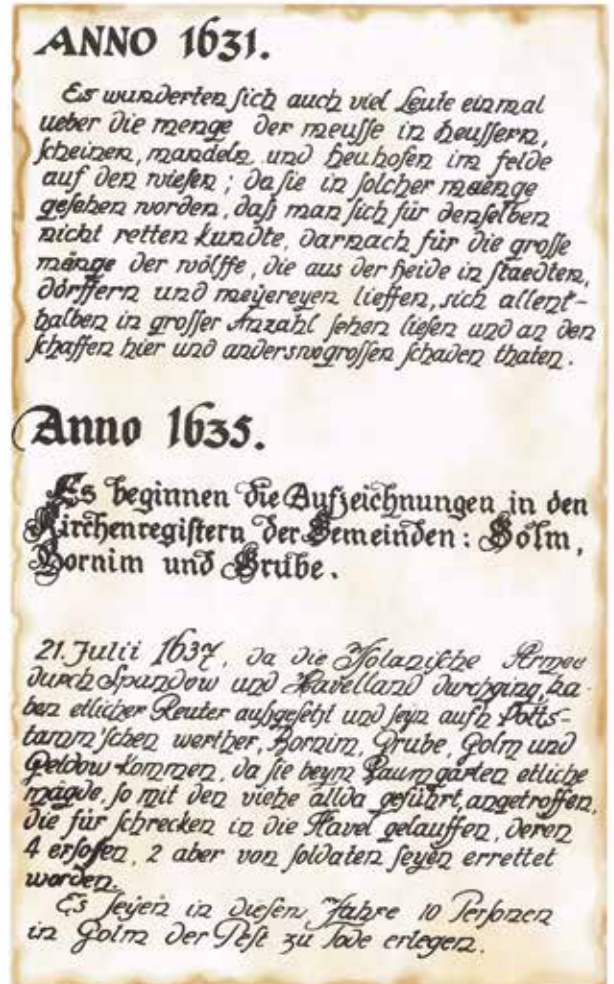 ANNO 1631.
Es wunderten sich auch viel Leute einmal
ueber die menge der meusse in heussern,
scheinen, mandeln und heuhofen im felde
auf den wiesen; da sie in solcher maenge
gesehen worden, daß man sich für denselben
nicht retten kundte, darnach für die grosse
mänge der wölffe, die aus der heide in staedten,
dörffern und meyereyen lieffen, sich allent-
halben in grosser Anzahl sehen liesen und an den
schaffen hier und anderswo grossen schaden thaten.
Anno 1635.
Es beginnen die Aufzeichnungen in den
Kirchenregistern der Gemeinden: Golm,
Bornim und Grube.
21. Julii 1637, da die Holanische Armee
durch Spandow und Havelland durchging, ha-
ben etlicher Reuter aufgesetzt und seyn aufn Potts-
tamm'schen werther, Bornim, Grube, Golm und
Geldow kommen, da sie beym Baumgarten etliche
mägde, so mit den viehe allda geführt, angetroffen,
die für schrecken in die Havel gelauffen, deren
4 ersofen, 2 aber von soldaten seyen errettet
worden.
Es seyen in diesen Jahre 10 Personen
in Golm der Pest zu Tode erlegen.